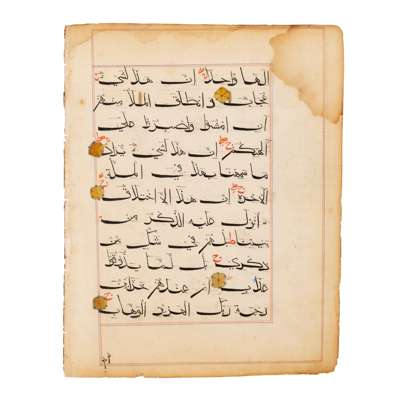 الها واحدا ان هذا لشئ
عجاب وانطلق الملا منهم
ان امشوا واصبروا على
الهتكم ان هذا لشئ يراد
ما سمعنا بهذا في الملة
الاخرة ان هذا الا اختلاق
ءانزل عليه الذكر من
بيننا بل هم في شك من
ذكري بل لما يذوقوا
عذاب ام عندهم خزائن
رحمة ربك العزيز الوهاب